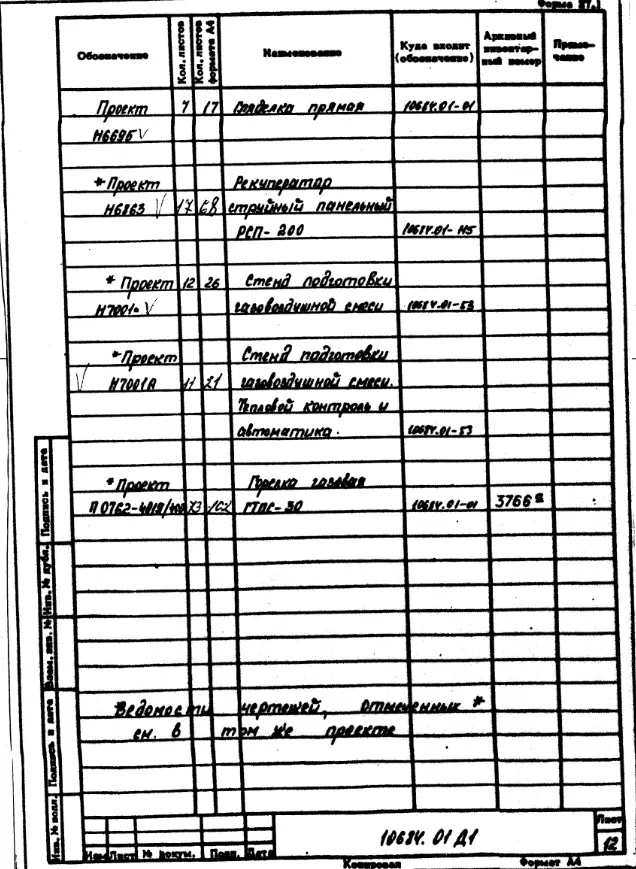 Форма 27.1
Обозначение Кол. листов Кол. листов формата А4 Наименование Куда входит (обозначение) Архивный инвентарный номер Примечание
Проект 7 17 прямая 10684.01-01
Н6695 V
*Проект Рекуператор
Н6863 V 17 68 струйный панельный
РСП-200 10684.01-
* Проект 12 26 Стенд подготовки
Н7001 V газовоздушной смеси 10684.01-53
*Проект Стенд подготовки
V Н7001А 11 21 газовоздушной смеси.
Тепловой контроль и
автоматика. 10684.01-53
*Проект Горелка газовая
73 ГТПС-30 10684.01-01 3766
Ведомости чертежей, отмеченных *
см. в том же проекте
Инв. № подл. Подпись и дата Взам. инв. № Инв. № дубл. Подпись и дата
Изм Лист № докум. Подп. Дата
10684.01 Д1
Лист
12
Копировал Формат А4